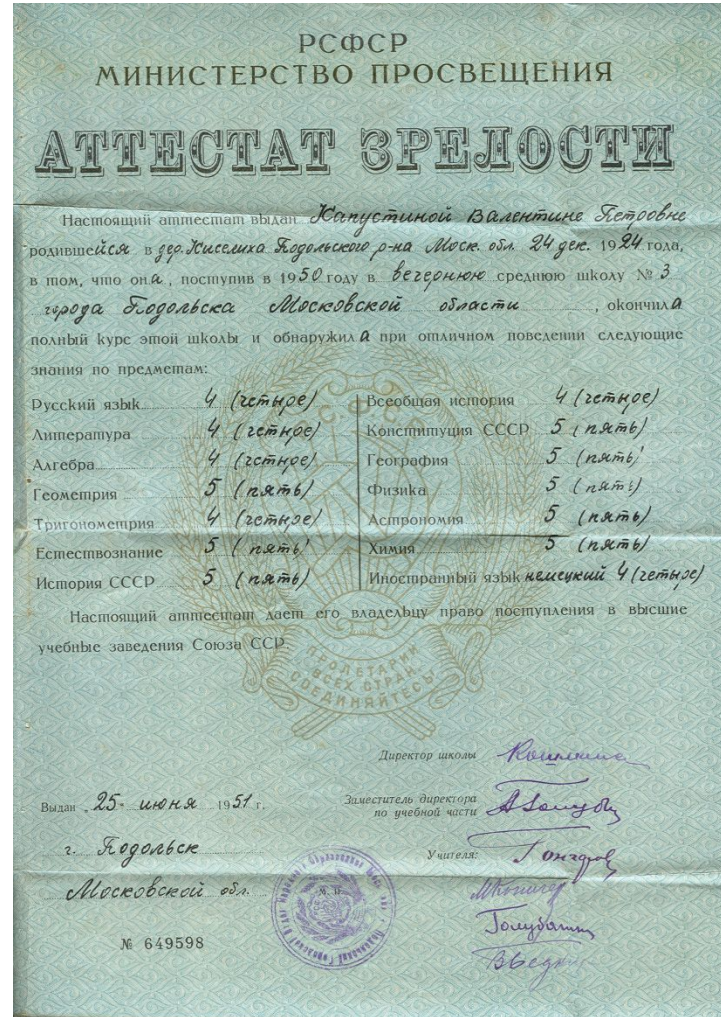 РСФСР
МИНИСТЕРСТВО ПРОСВЕЩЕНИЯ
АТТЕСТАТ ЗРЕЛОСТИ
Настоящий аттестат выдан Капустиной Валентине Петровне
родившейся в дер. Киселиха Подольского р-на Моск. обл. 24 дек. 1924 года,
в том, что она, поступив в 1950 году в вечернюю среднюю школу № 3
города Подольска Московской области, окончила
полный курс этой школы и обнаружила при отличном поведении следующие
знания по предметам:
Русский язык 4 (четыре)
Литература 4 (четыре)
Алгебра 4 (четыре)
Геометрия 5 (пять)
Тригонометрия 4 (четыре)
Естествознание 5 (пять)
История СССР 5 (пять)
Всеобщая история 4 (четыре)
Конституция СССР 5 (пять)
География 5 (пять)
Физика 5 (пять)
Астрономия 5 (пять)
Химия 5 (пять)
Иностранный язык немецкий 4 (четыре)
Настоящий аттестат дает его владельцу право поступления в высшие
учебные заведения Союза ССР.
ПРОЛЕТАРИИ
ВСЕХ СТРАН,
СОЕДИНЯЙТЕСЬ
Директор школы
Выдан „25" июня 1951 г.
Заместитель директора
по учебной части
г. Подольск
Учителя:
Московской обл.
М. П.
№ 649598